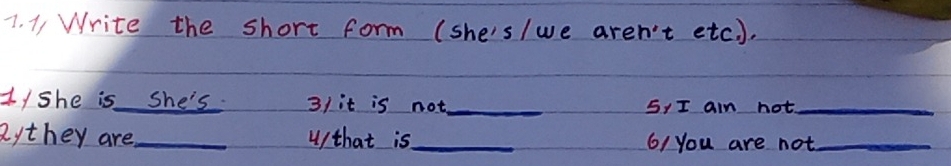 1.1/ Write the short form (she's/we aren't etc.).
1/ She is She's. 3/ it is not 5/ I am not
2/ they are 4/ that is 6/ You are not